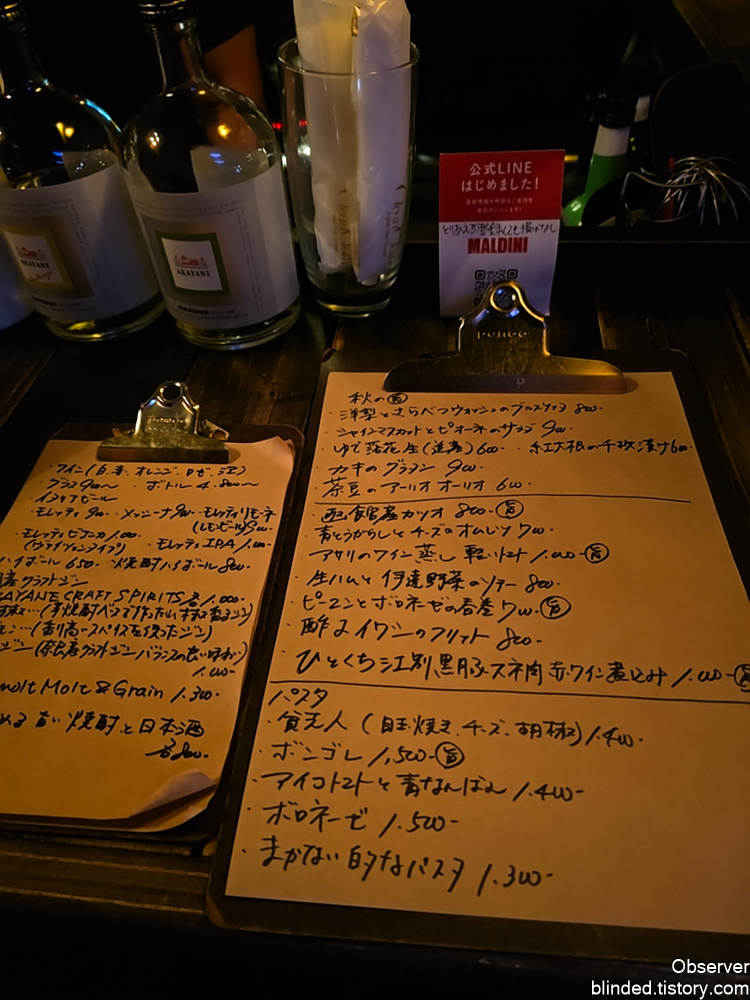 AKAYANE
AKAYANE
公式LINE
はじめました!
とりあえず登録しても損はなし
MALDINI
・ワイン(白、赤、オレンジ、ロゼ、泡)
グラス 900〜 ボトル 4.800〜
イタリアビール
・モレッティ 900- メッシーナ 900- モレッティリモーネ
(レモンビール) 900-
・モレッティビアンカ 1.000-
(ヴァイツェンタイプ) モレッティIPA 1.000-
ハイボール 650. 焼酎ハイボール 800-
産クラフトジン
AYANE CRAFT SPIRITS 各1.000-
(芋焼酎ベースで作った山椒香るジン)
(香り高いスパイスを使ったジン)
ジン(奈良産クラフトジン バランスの良い味わい)
1.000-
Malt & Grain 1.300-
める 旨い焼酎と日本酒
各800-
秋の旨
・洋梨とさらべつウォッシュのブルスケッタ 800-
・シャインマスカットとピオーネのサラダ 900-
・ゆで落花生(道産) 600- ・紅大根の千枚漬け 600-
・カキのグラタン 900-
・茶豆のアーリオオーリオ 600-
・函館産カツオ 800- 旨
・青とうがらしとチーズのオムレツ 700-
・アサリのワイン蒸し 軽いトマト 1.000- 旨
・生ハムと伊達野菜のソテー 800-
・ピーマンとボロネーゼの春巻 700- 旨
・酢〆イワシのフリット 800-
・ひとくち江別黒豚スネ肉赤ワイン煮込み 1.000- 旨
パスタ
・貧乏人(目玉焼き、チーズ、胡椒) 1.400-
・ボンゴレ 1,500- 旨
・アイコトマトと青なんばん 1.400-
・ボロネーゼ 1.500-
・まかない的なパスタ 1.300-
Observer
blinded.tistory.com